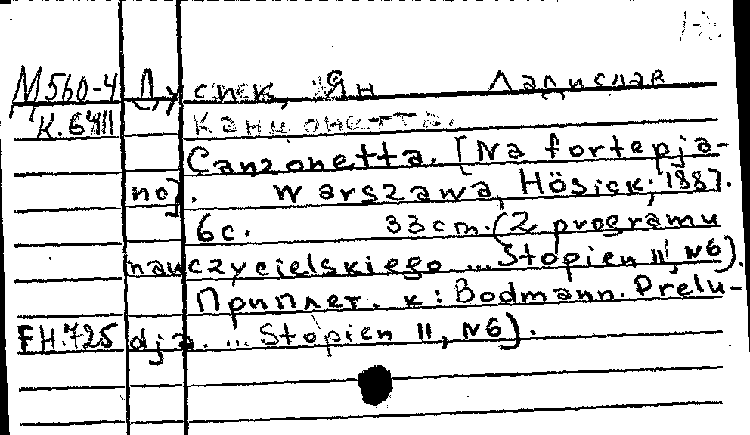 М560-4 Дусик, Ян Ладислав
К.6411 Канцонетта.
Canzonetta. [Na fortepja-
no]. Warszawa, Hösick, 1887.
6с. 33 cm. (Z programu
nauczycielskiego ... Stopien II, N6).
Приплет. к: Bodmann. Prelu-
FH.725 dja. ... Stopien II, N6).